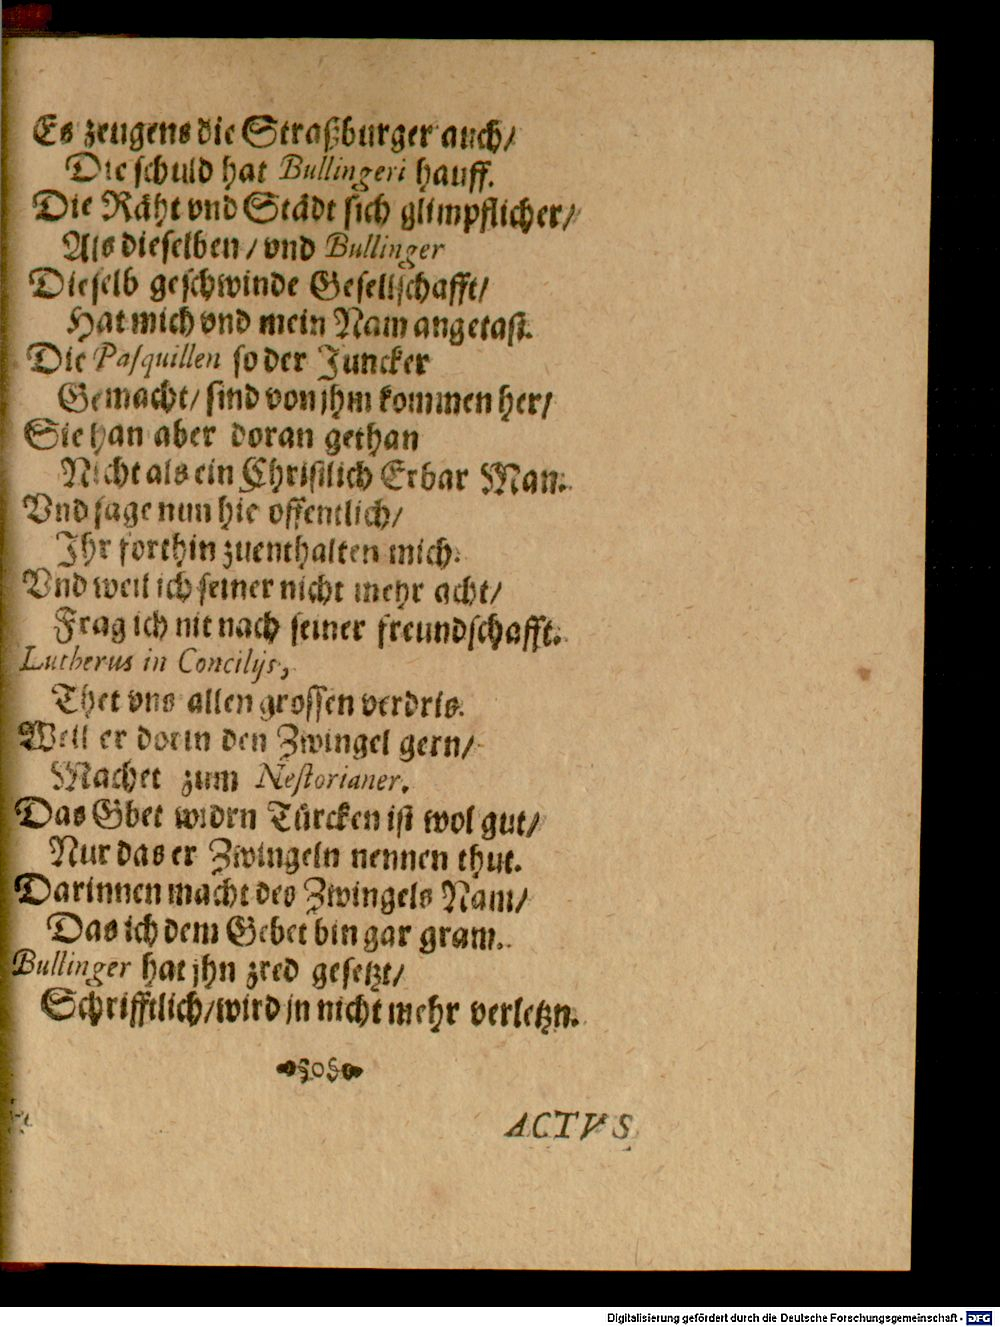 Es zeugens die Straßburger auch/
Die schuld hat Bullingeri hauff.
Die Räht vnd Städt sich glimpflicher/
Als dieselben/ vnd Bullinger
Dieselb geschwinde Gesellschafft/
Hat mich vnd mein Nam angetast.
Die Pasquillen so der Juncker
Gemacht/ sind von jhm kommen her/
Sie han aber doran gethan
Nicht als ein Christlich Erbar Man.
Vnd sage nun hie offentlich/
Ihr forthin zuenthalten mich.
Vnd weil ich seiner nicht mehr acht/
Frag ich nit nach seiner freundschafft.
Lutherus in Concilijs,
Thet vns allen grossen verdris.
Weil er dorin den Zwingel gern/
Machet zum Nestorianer.
Das Gbet widrn Türcken ist wol gut/
Nur das er Zwingeln nennen thut.
Darinnen macht des Zwingels Nam/
Das ich dem Gebet bin gar gram.
Bullinger hat jhn zred gesetzt/
Schrifftlich/ wird jn nicht mehr verletzn.
ACTVS
Digitalisierung gefördert durch die Deutsche Forschungsgemeinschaft - DFG